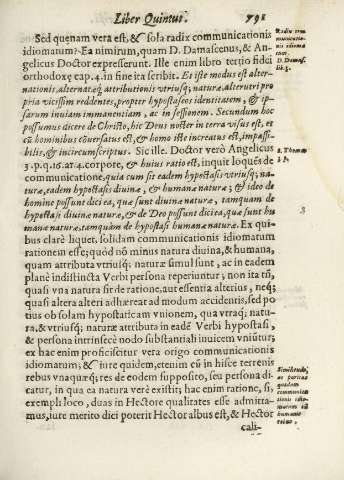 Liber Quintus. 791
Sed quenam vera est, & sola radix communicationis
idiomatum? Ea nimirum, quam D. Damascenus, & An-
gelicus Doctor expresserunt. Ille enim libro tertio fidei
orthodoxę cap. 4. in fine ita scribit. Et iste modus est alter-
nationis, alternatęq; attributionis vtriusq; naturæ, alterutri pro
pria vicissim reddentes, propter hypostaseos identitatem, & ip-
sarum inuiam immanentiam, ac in sessionem. Secundum hoc
possumus dicere de Christo, hic Deus noster in terra visus est, et
cū hominibus cōuersatus est, & homo iste increatus est, impassi-
bilis, & incircumscriptus. Sic ille. Doctor verò Angelicus
3. p. q. 16. ar. 4. corpore, & huius ratio est, inquit loquēs de
communicatione, quia cum sit eadem hypostasis vtriusq; na-
turæ, eadem hypostasis diuinæ, & humanæ naturæ; & ideo de
homine possunt dici ea, quæ sunt diuinæ naturæ, tamquam de
hypostasi diuinæ naturæ, & de Deo possunt dici ea, quæ sunt hu
manæ naturæ, tamquàm de hypostasi humanæ naturæ. Ex qui-
bus clarè liquet, solidam communicationis idiomatum
rationem esse; quòd nō minus natura diuina, & humana,
quam attributa vtriusq; naturæ simul sunt, ac in eadem
planè indistincta Verbi persona reperiuntur; non ita tñ,
quasi vna natura sit de ratione, aut essentia alterius, neq;
quasi altera alteri adhæreat ad modum accidentis, sed po
tius ob solam hypostaticam vnionem, qua vtraq; natu-
ra, & vtriusq; naturæ attributa in eadē Verbi hypostasi,
& persona intrinsecè nodo substantiali inuicem vniūtur;
ex hac enim proficiscitur vera origo communicationis
idiomatum; & iure quidem, etenim cū in hisce terrenis
rebus vnaquæq; res de eodem supposito, seu persona di
catur, in qua ea natura verè existit; hac enim ratione, si,
exempli loco, duas in Hectore qualitates esse admitta-
mus, iure merito dici poterit Hector albus est, & Hector
cali-
Radix com
municatio-
nis idioma
tum.
D. Damas.
S. Thomas
Similitudo,
communi
cationem
idiomatum
humanis